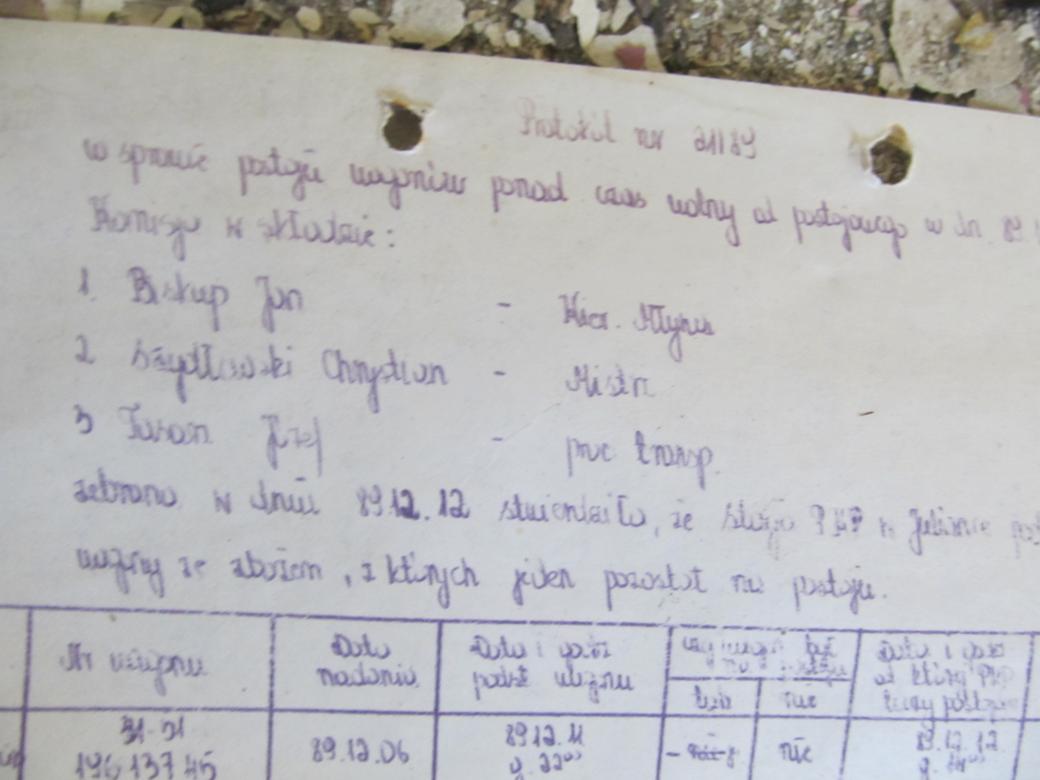 Protokół nr 21/89
w sprawie postoju wagonów ponad czas wolny od postojowego w dn. 89.
Komisja w składzie:
1. Biskup Jan - Kier. Młyna
2 Szydłowski Chrystian - Mistrz
3 Józef - prac transp.
zebrana w dniu 89.12.12 stwierdziła, że stacja PKP w
wagony ze zbożem, z których jeden pozostał na postoju.
Nr wagonu
Data nadania
Data i godz podst wagonu
tak
nie
Data i godz od której PKP liczy
31-51
89.12.06
89.12.11
nie
89.12.12